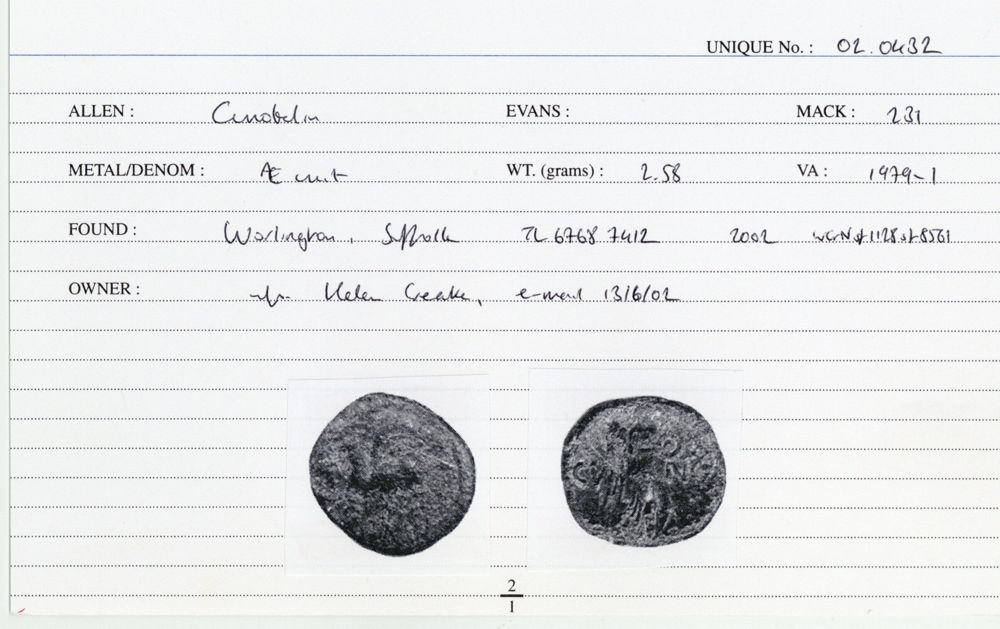 UNIQUE No. : 02.0432
ALLEN : Cunobelin EVANS : MACK : 231
METAL/DENOM : Æ unit WT. (grams) : 2.58 VA : 1979-1
FOUND : Worlington, Suffolk TL 6768 7412 2002
OWNER : Helen Geake, e-mail 13/6/02
2
1